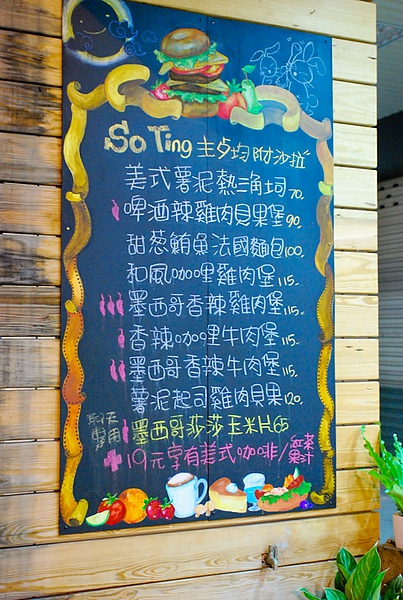 So Ting 主歺均附沙拉
美式薯泥熱三角坷 70.
啤酒辣雞肉貝果堡 90.
甜葱鮪魚法國麵包 100.
和風咖哩雞肉堡 115.
墨西哥香辣雞肉堡 115.
香辣咖哩牛肉堡 115.
墨西哥香辣牛肉堡 115.
薯泥起司雞肉貝果 120.
聊天
墨西哥莎莎玉米片 65
+ 19元享有美式咖啡/紅茶
果汁